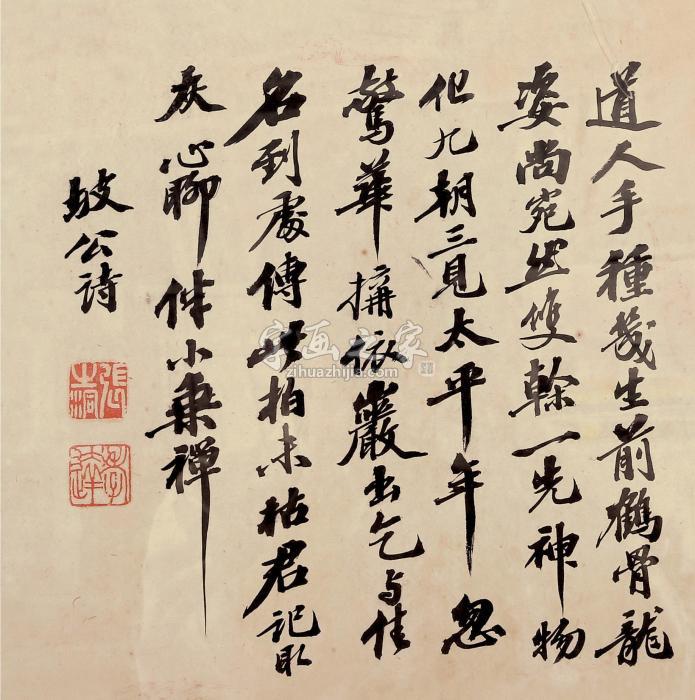 道人手種幾生前鶴骨龍
姿尚宛然雙榦一先神物
化九朝三見太平年忽
驚華搆依巖出乞与佳
名到處傳此柏未枯君記取
灰心聊伴小乘禪
坡公詩
張之洞
孝達
字画之家
zihuazhijia.com